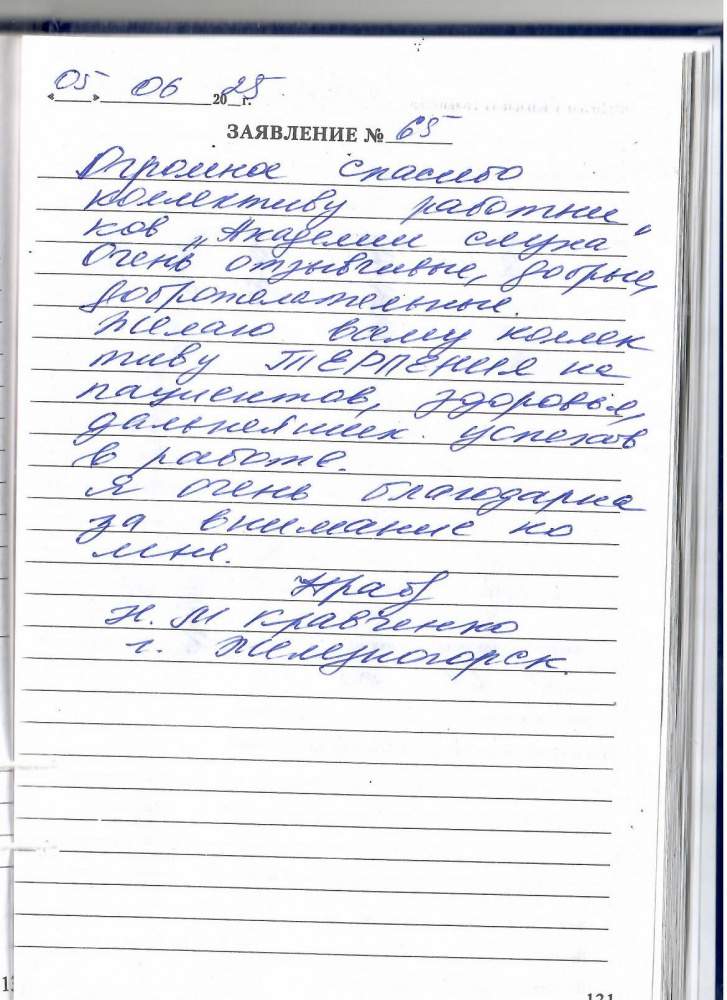 «05» 06 2025 г.
ЗАЯВЛЕНИЕ № 65
Огромное спасибо
коллективу работни
ков „Академии слуха“
Очень отзывчивые, добрые,
доброжелательные.
Желаю всему коллек
тиву ТЕРПЕНИЯ на
пациентов, здоровья,
дальнейших успехов
в работе.
Я очень благодарна
за внимание ко
мне.
Н. М Кравченко
г. Железногорск.
121